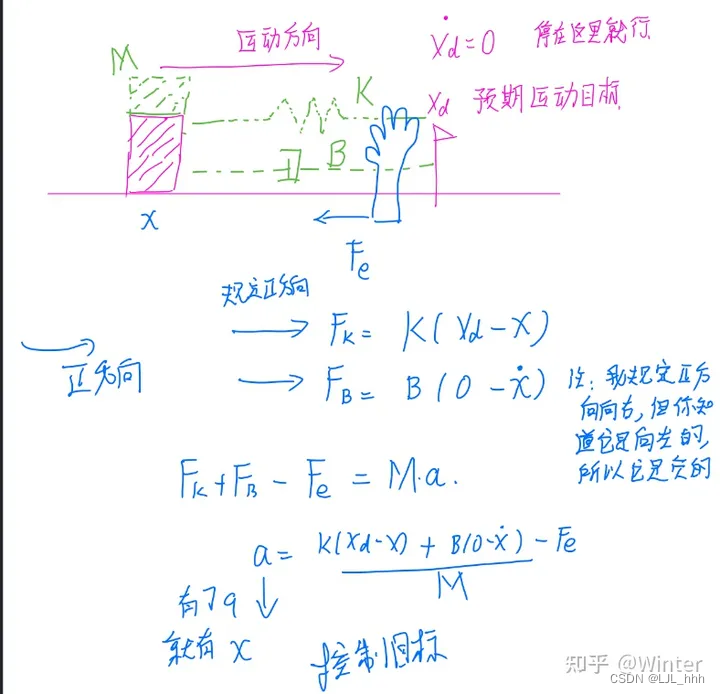 运动方向
Ẋd=0 停在这里就行
M
K
Xd 预期运动目标
B
x
Fe
规定正方向
Fk= K(Xd-X)
正方向
FB= B(0-ẋ)
注:我规定正方
向向右,但你知
道它是向左的,
所以它是负的
Fk+FB-Fe=M·a.
a= K(Xd-X) + B(0-ẋ) -Fe
M
有了a
就有 x
控制目标
知乎 @Winter
CSDN @LJL_hhh